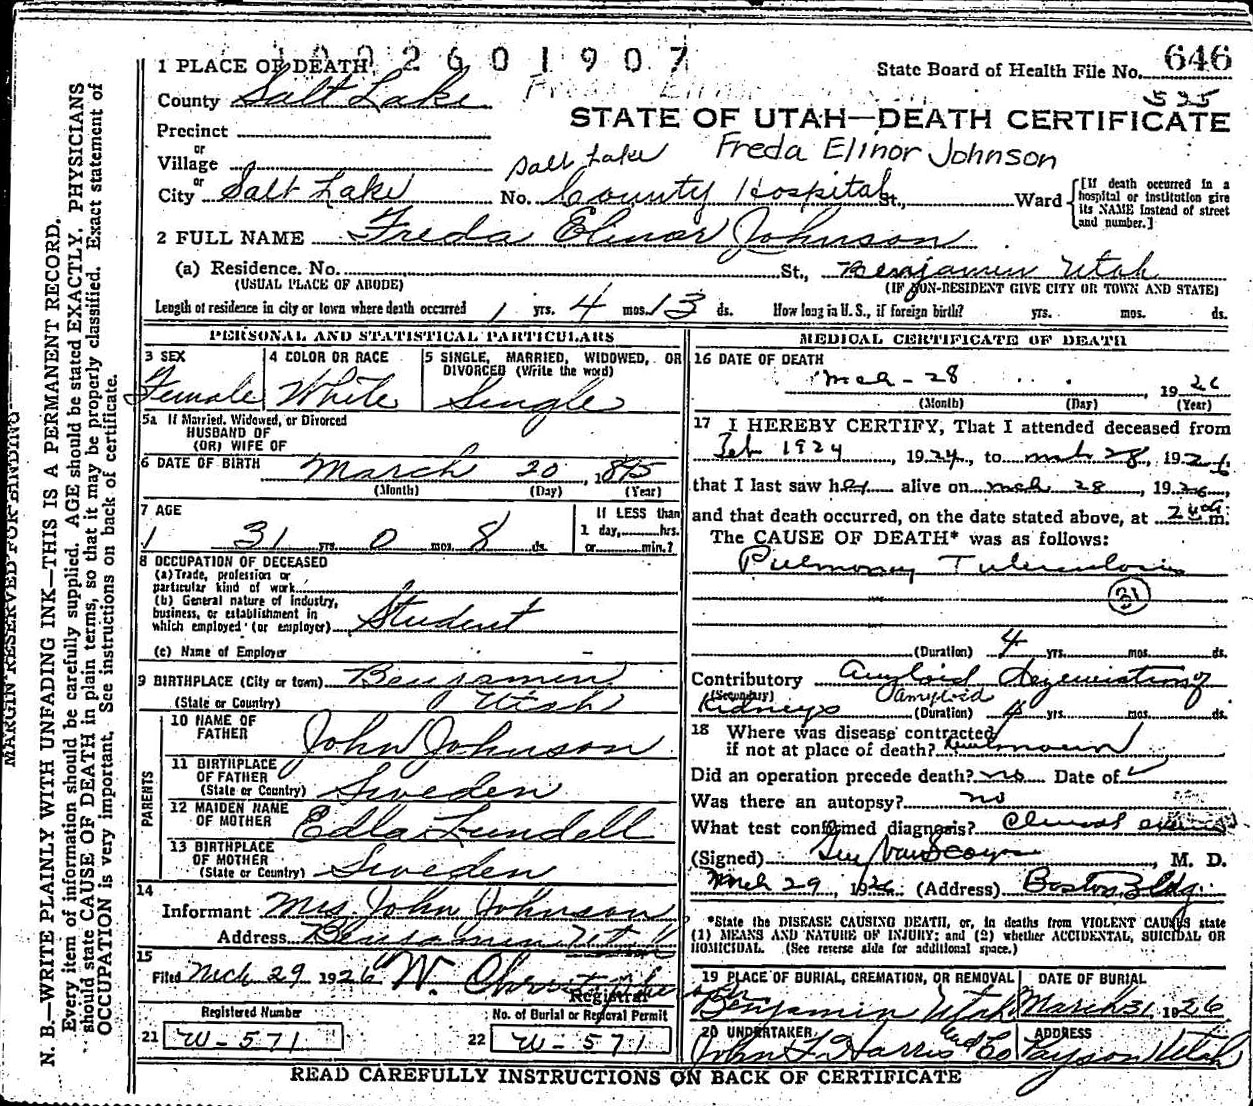 1002601907
646
1 PLACE OF DEATH
State Board of Health File No.
County Salt Lake
535
STATE OF UTAH—DEATH CERTIFICATE
Precinct
or
Village
Salt Lake
Freda Elinor Johnson
or
City Salt Lake No. County Hospital St., Ward
[If death occurred in a hospital or institution give its NAME instead of street and number.]
2 FULL NAME Freda Elinor Johnson
(a) Residence. No. St., Benjamin Utah
(USUAL PLACE OF ABODE) (IF NON-RESIDENT GIVE CITY OR TOWN AND STATE)
Length of residence in city or town where death occurred 1 yrs. 4 mos. 13 ds. How long in U. S., if foreign birth? yrs. mos. ds.
PERSONAL AND STATISTICAL PARTICULARS
3 SEX
Female
4 COLOR OR RACE
White
5 SINGLE, MARRIED, WIDOWED, OR DIVORCED (Write the word)
Single
5a If Married, Widowed, or Divorced
HUSBAND OF
(OR) WIFE OF
6 DATE OF BIRTH March 20, 1895
(Month) (Day) (Year)
7 AGE
31 yrs. 0 mos. 8 ds.
If LESS than
1 day, hrs.
or min.?
8 OCCUPATION OF DECEASED
(a) Trade, profession or
particular kind of work
(b) General nature of industry,
business, or establishment in
which employed (or employer) Student
(c) Name of Employer
9 BIRTHPLACE (City or town) Benjamin
(State or Country) Utah
PARENTS
10 NAME OF
FATHER John Johnson
11 BIRTHPLACE
OF FATHER
(State or Country) Sweden
12 MAIDEN NAME
OF MOTHER Edla Lundell
13 BIRTHPLACE
OF MOTHER
(State or Country) Sweden
14
Informant Mrs John Johnson
Address Benjamin Utah
15
Filed Mch 29 1926 W.
Registrar
Registered Number
21 W-571
No. of Burial or Removal Permit
22 W-571
MEDICAL CERTIFICATE OF DEATH
16 DATE OF DEATH
Mch - 28 1926
(Month) (Day) (Year)
17 I HEREBY CERTIFY, That I attended deceased from
Feb 1924, 1924, to Mch 28, 1926
that I last saw her alive on Mch 28, 1926,
and that death occurred, on the date stated above, at m.
The CAUSE OF DEATH* was as follows:
Pulmonary Tuberculosis
31
(Duration) 4 yrs. mos. ds.
Contributory Amyloid degeneration of
(Secondary) Amyloid
Kidneys (Duration) yrs. mos. ds.
18 Where was disease contracted
if not at place of death?
Did an operation precede death? no Date of
Was there an autopsy? no
What test confirmed diagnosis? Clinical
(Signed) M. D.
Mch 29, 1926 (Address) Boston Bldg.
*State the DISEASE CAUSING DEATH, or, in deaths from VIOLENT CAUSES state
(1) MEANS AND NATURE OF INJURY; and (2) whether ACCIDENTAL, SUICIDAL OR
HOMICIDAL. (See reverse side for additional space.)
19 PLACE OF BURIAL, CREMATION, OR REMOVAL
Benjamin Utah
DATE OF BURIAL
March 31 1926
20 UNDERTAKER
John F. Harris Und Co
ADDRESS
Payson Utah
READ CAREFULLY INSTRUCTIONS ON BACK OF CERTIFICATE
MARGIN RESERVED FOR BINDING
N. B.—WRITE PLAINLY WITH UNFADING INK—THIS IS A PERMANENT RECORD.
Every item of information should be carefully supplied. AGE should be stated EXACTLY. PHYSICIANS
should state CAUSE OF DEATH in plain terms, so that it may be properly classified. Exact statement of
OCCUPATION is very important. See instructions on back of certificate.